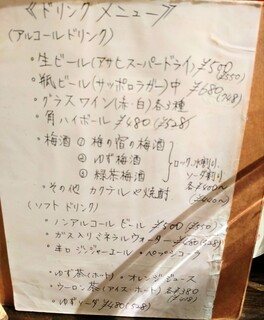 ≪ドリンク メニュー≫
(アルコールドリンク)
・生ビール(アサヒスーパードライ) ¥500(550)
・瓶ビール(サッポロラガー)中 ¥680(748)
・グラスワイン(赤・白)各3種
・角ハイボール ¥480(528)
・梅酒 ① 梅の宿の梅酒
② ゆず梅酒
③ 緑茶梅酒
ロック、水割り、
ソーダ割り
各¥400〜
・その他 カクテルや焼酎
(ソフトドリンク)
・ノンアルコールビール ¥500(550)
・ガス入りミネラルウォーター ¥480(528)
・辛口ジンジャーエール ・ペプシコーラ
・ゆず茶(ホット) ・オレンジジュース
・ウーロン茶(アイス・ホット) 各¥380
・ゆずソーダ ¥480(528)